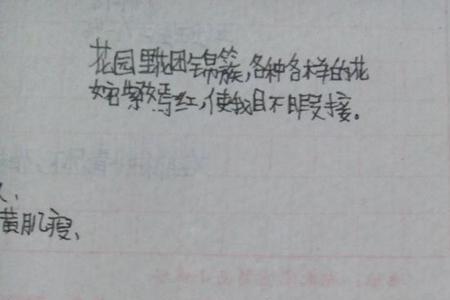 花园里花团锦簇,各种各样的花
姹紫嫣红,使我目不暇接。
黄肌瘦、